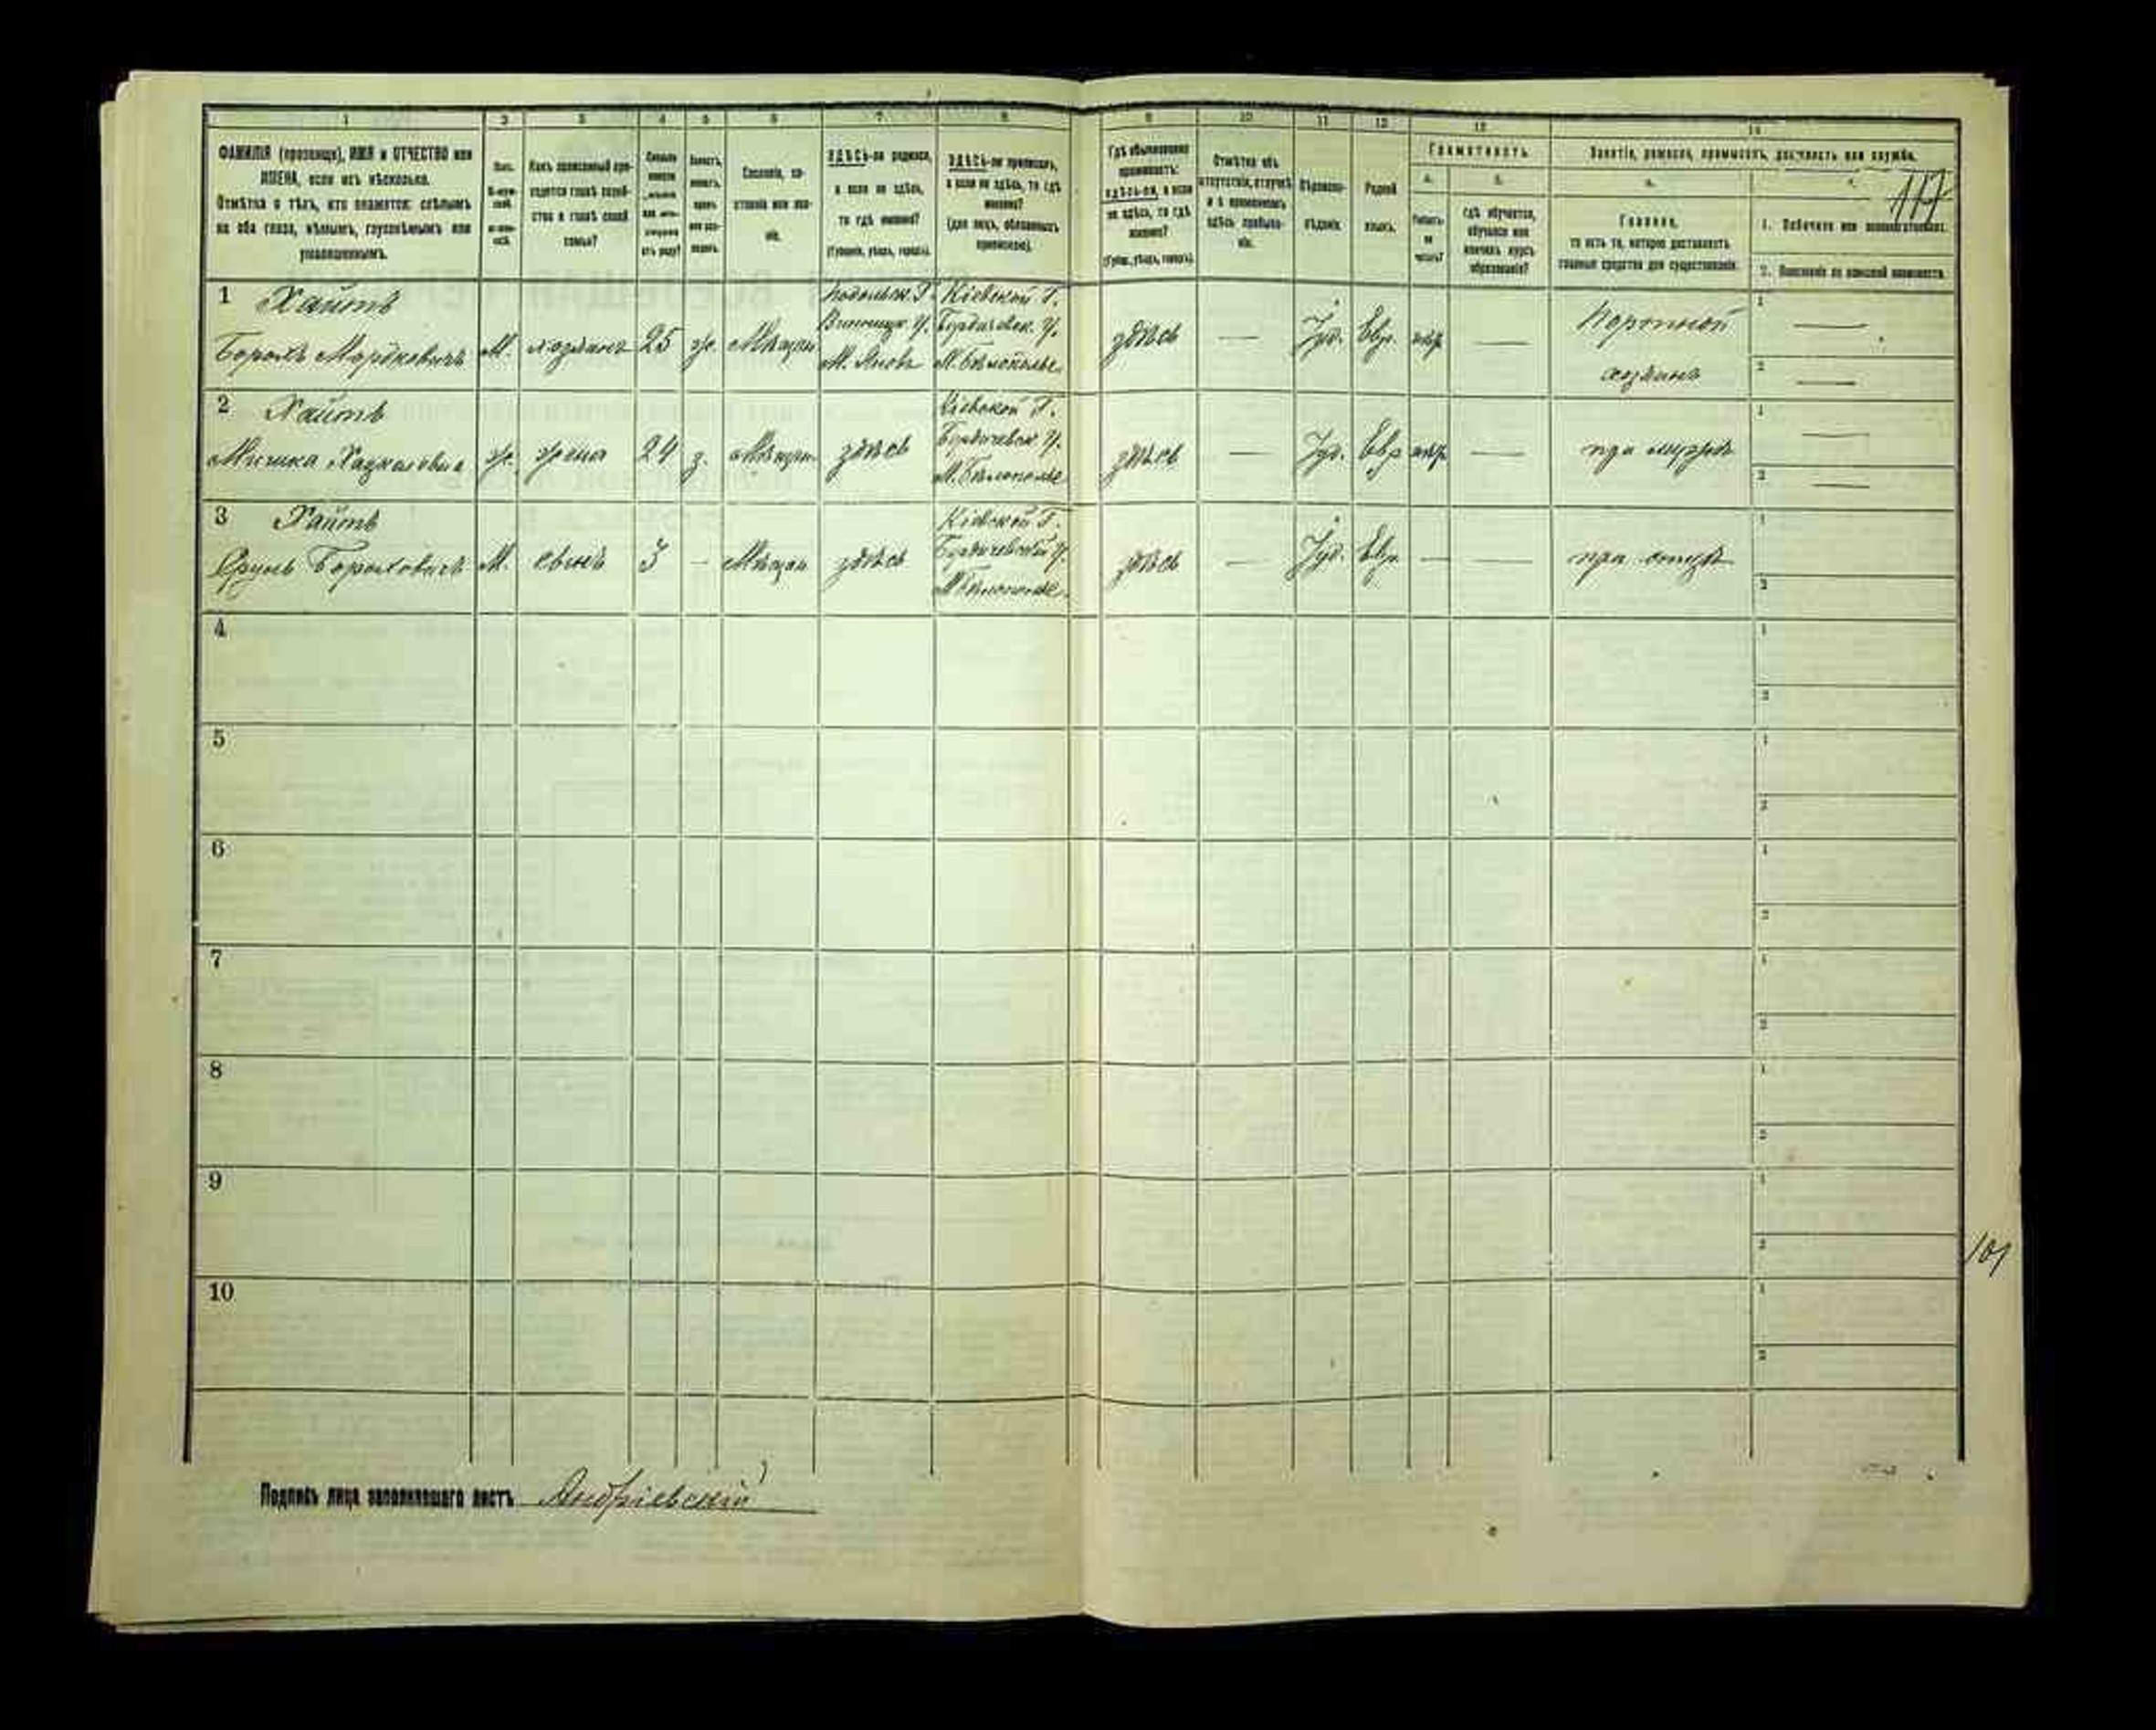 1 2 3 4 5 6 7 8 9 10 11 12 13 14
ФАМИЛІЯ (прозвище), ИМЯ и ОТЧЕСТВО или
ИМЕНА, если ихъ нѣсколько.
Отмѣтка о тѣхъ, кто окажется: слѣпымъ
на оба глаза, нѣмымъ, глухонѣмымъ или
умалишеннымъ.
Полъ.
Какъ записанный при-
ходится главѣ хозяй-
ства и главѣ своей
семьи?
Сословіе, со-
стояніе или зва-
ніе.
ЗДѢСЬ-ли родился,
а если не здѣсь,
то гдѣ именно?
(Губернія, уѣздъ, городъ).
ЗДѢСЬ-ли приписанъ,
а если не здѣсь, то гдѣ
именно?
(для лицъ, обязанныхъ
припискою).
Гдѣ обыкновенно
проживаетъ:
здѣсь-ли, а если
не здѣсь, то гдѣ
именно?
(Губер., уѣздъ, городъ).
Отмѣтка объ
отсутствіи, отлучкѣ
и о временномъ
здѣсь пребыва-
ніи.
Вѣроиспо-
вѣданіе.
Родной
языкъ.
Грамотность.
а.
б.
Умѣетъ-
ли
читать?
гдѣ обучается,
обучался или
кончилъ курсъ
образованія?
Занятіе, ремесло, промыселъ, должность или служба.
а.
Главное,
то есть то, которое доставляетъ
главныя средства для существованія.
117
1. Побочное или вспомогательное.
2. Положеніе по воинской повинности.
1 Хаитъ
Борохъ Мордковичъ М. хозяинъ 25 ж. Мѣщан
Подольск. Г.
Винницк. У.
М. Яновъ
Кіевской Г.
Бердичевск. У.
М. Бѣлополье
здѣсь — Іуд. Евр. — Портной
хозяинъ
1 —
2 —
2 Хаитъ
жена 24 з. Мѣщан здѣсь
Кіевской Г.
Бердичевск У.
М. Бѣлополье
здѣсь — Іуд. Евр — при мужѣ
1 —
2 —
3 Хаитъ
Срулъ Бороховичъ М. сынъ 3 — Мѣщан здѣсь
Кіевской Г.
Бердичевской У.
М Бѣлополье
здѣсь — Іуд. Евр. — — при отцѣ
1
2
4 1
2
5 1
2
6 1
2
7 1
2
8 1
2
9 1
2
101
10 1
2
Подпись лица заполнявшаго листъ Андріевскій